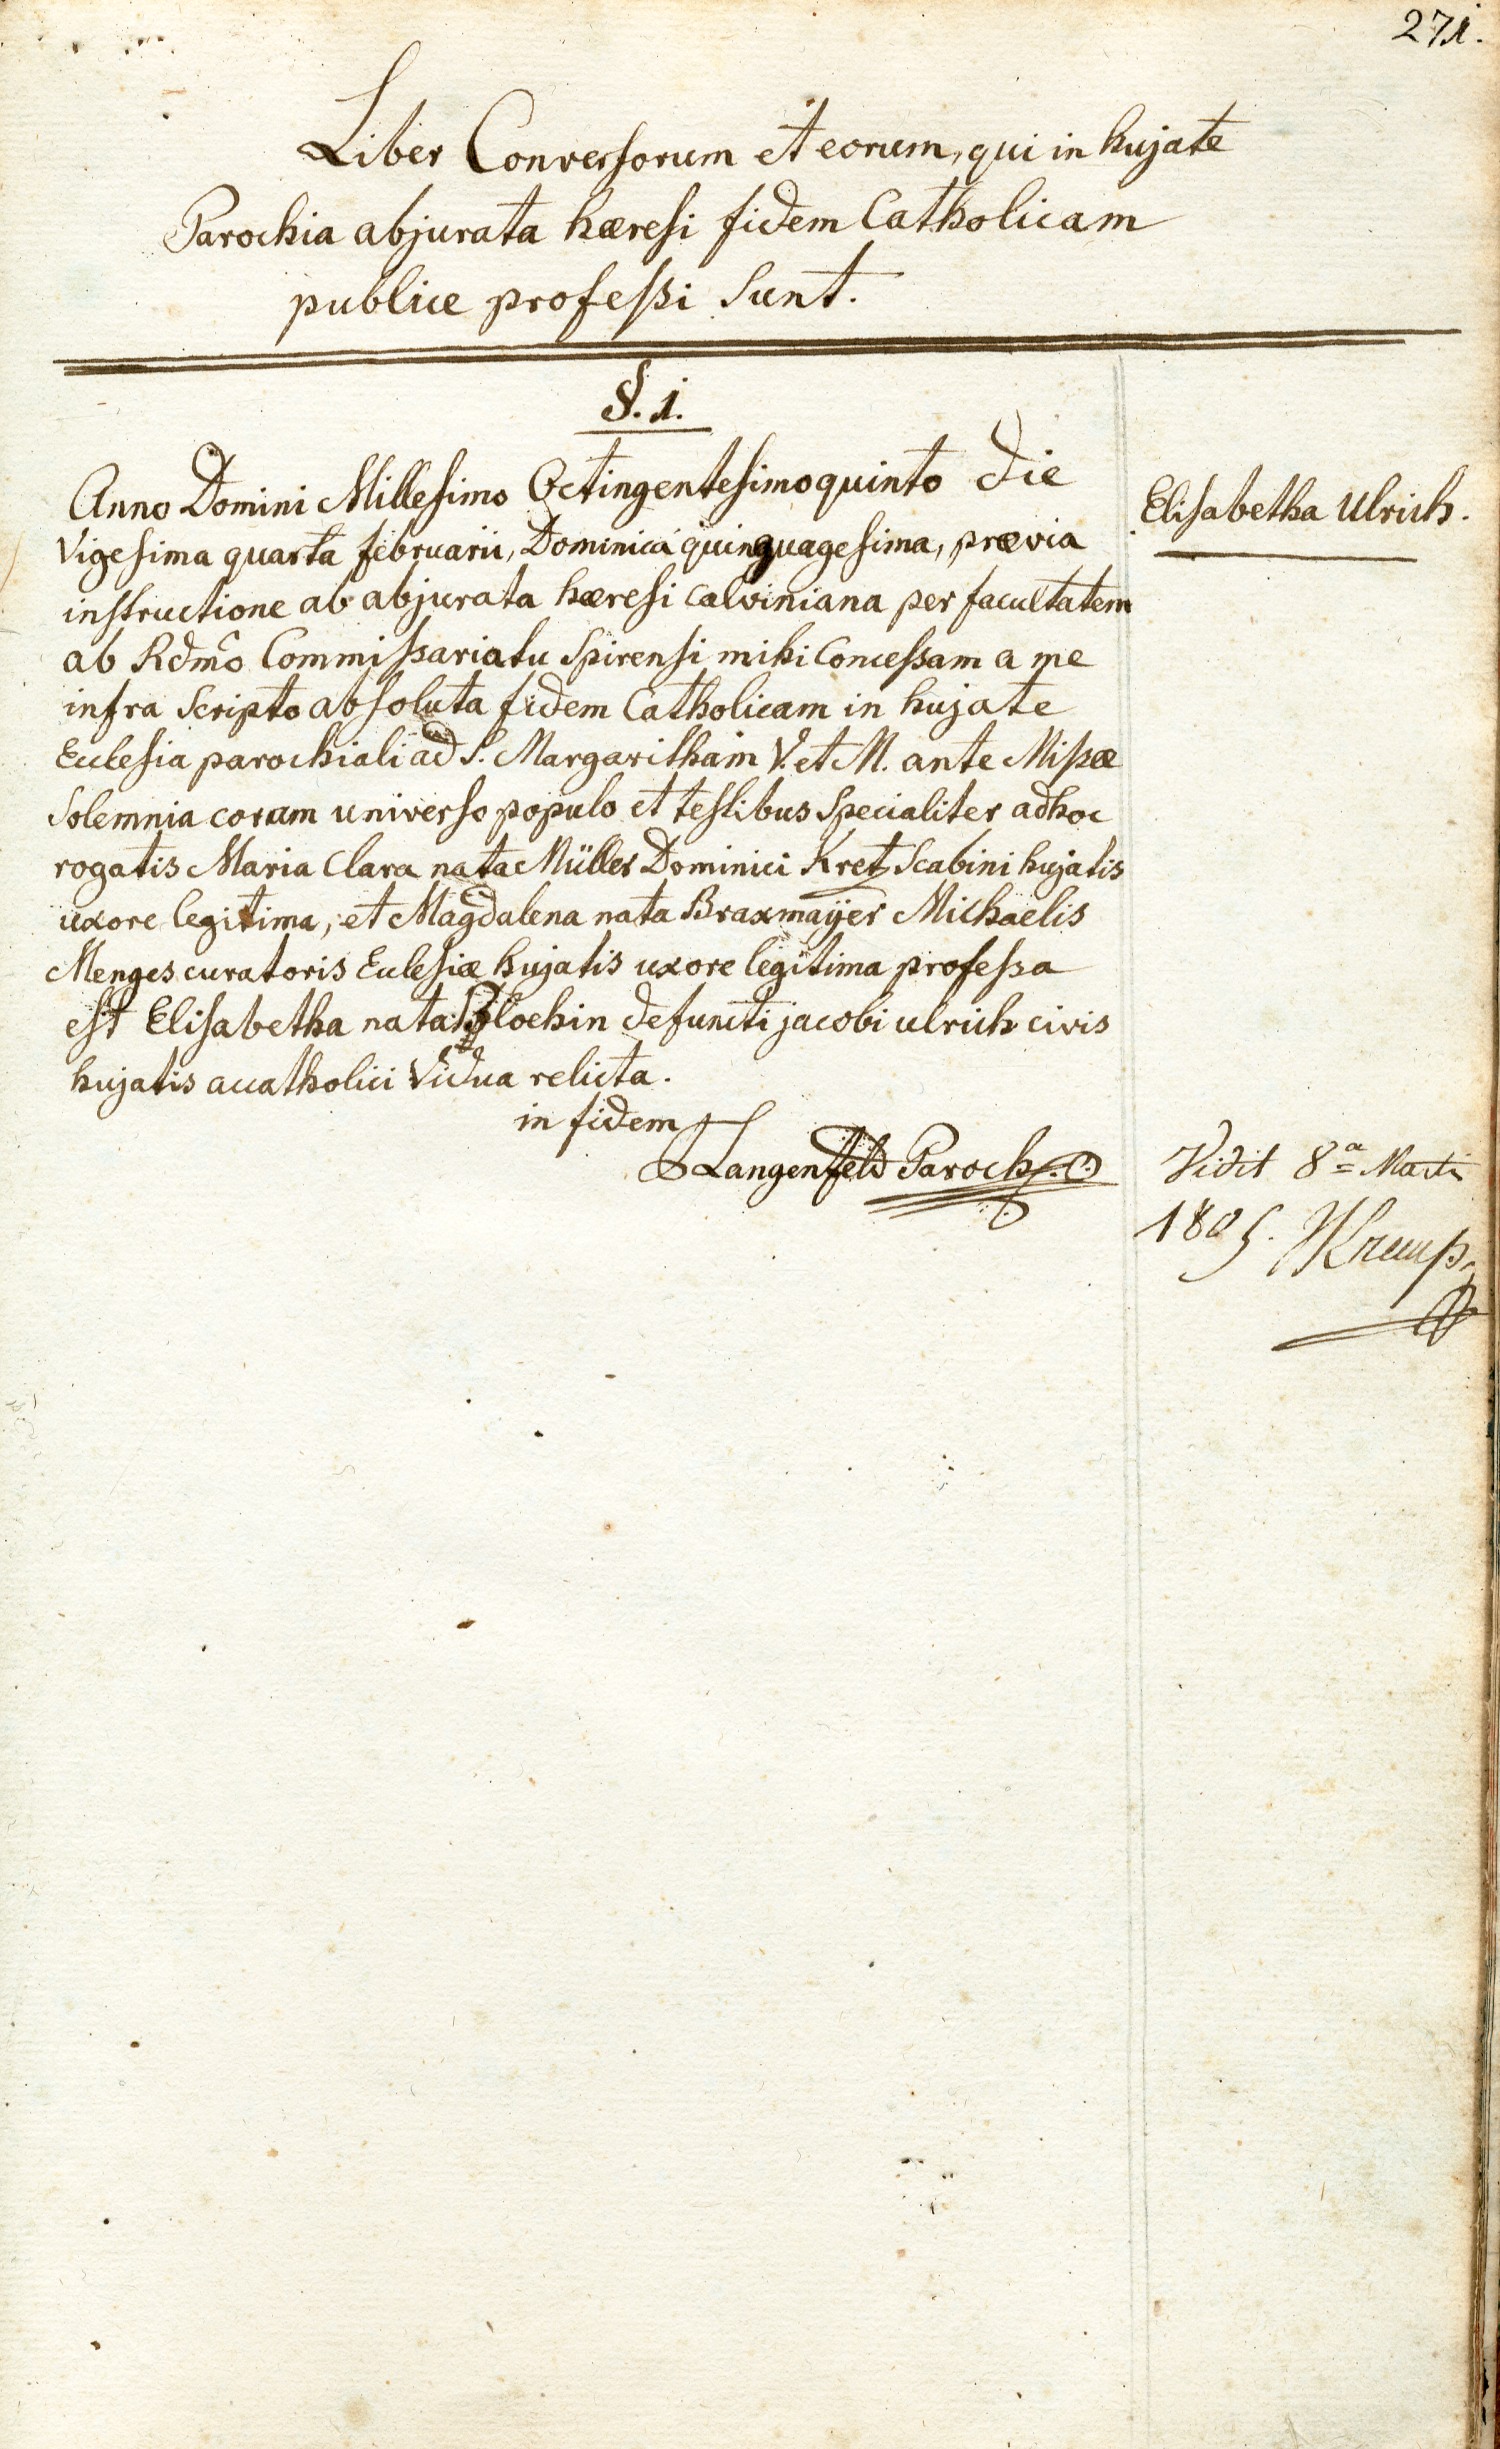 271.
Liber Conversorum et eorum, qui in hujate
Parochia abjurata hæresi fidem Catholicam
publice professi sunt.
§. 1.
Anno Domini Millesimo Octingentesimo quinto die
Vigesima quarta februarii, Dominica quinquagesima, prævia
instructione ab abjurata hæresi calviniana per facultatem
ab Rdmo Commissariatu Spirensi mihi Concessam a me
infra Scripto absoluta fidem Catholicam in hujate
Ecclesia parochiali ad S. Margaritham V. et M. ante Missæ
Solemnia coram universo populo et testibus Specialiter adhoc
rogatis Maria Clara nata Müller Dominici Kretz Scabini hujatis
uxore legitima, et Magdalena nata Braxmaÿer Michaelis
Menges curatoris Ecclesiæ hujatis uxore legitima professa
est Elisabetha nata defuncti jacobi ulrich civis
hujatis accatholici Vidua relicta.
in fidem
Langenfeld Paroch
Elisabetha Ulrich.
Vidit 8ª Martii
1805.